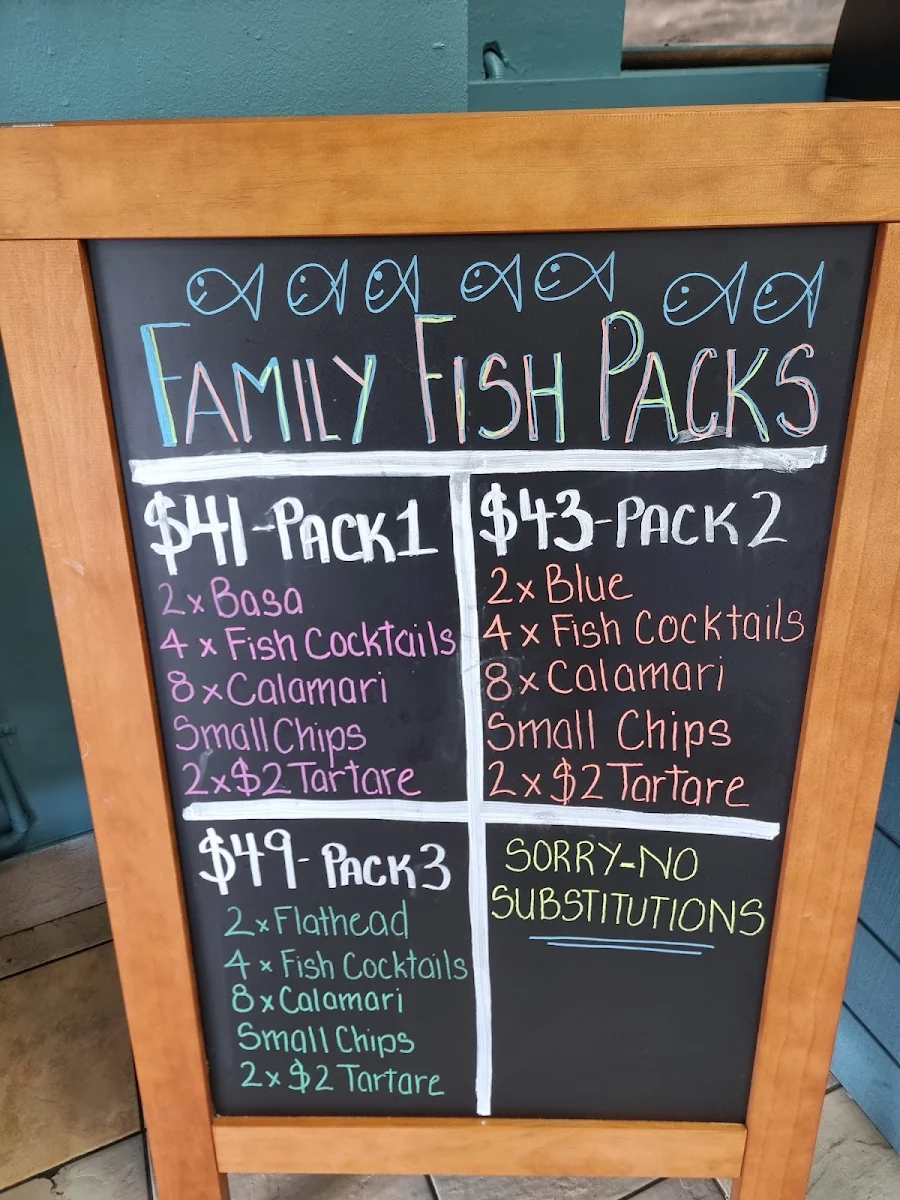 FAMILY FISH PACKS
$41-PACK1
2x Basa
4 x Fish Cocktails
8 x Calamari
Small Chips
2 x $2 Tartare
$43-PACK 2
2x Blue
4x Fish Cocktails
8x Calamari
Small Chips
2 x $2 Tartare
$49- PACK3
2x Flathead
4 x Fish Cocktails
8 x Calamari
Small Chips
2x $2 Tartare
SORRY-NO
SUBSTITUTIONS